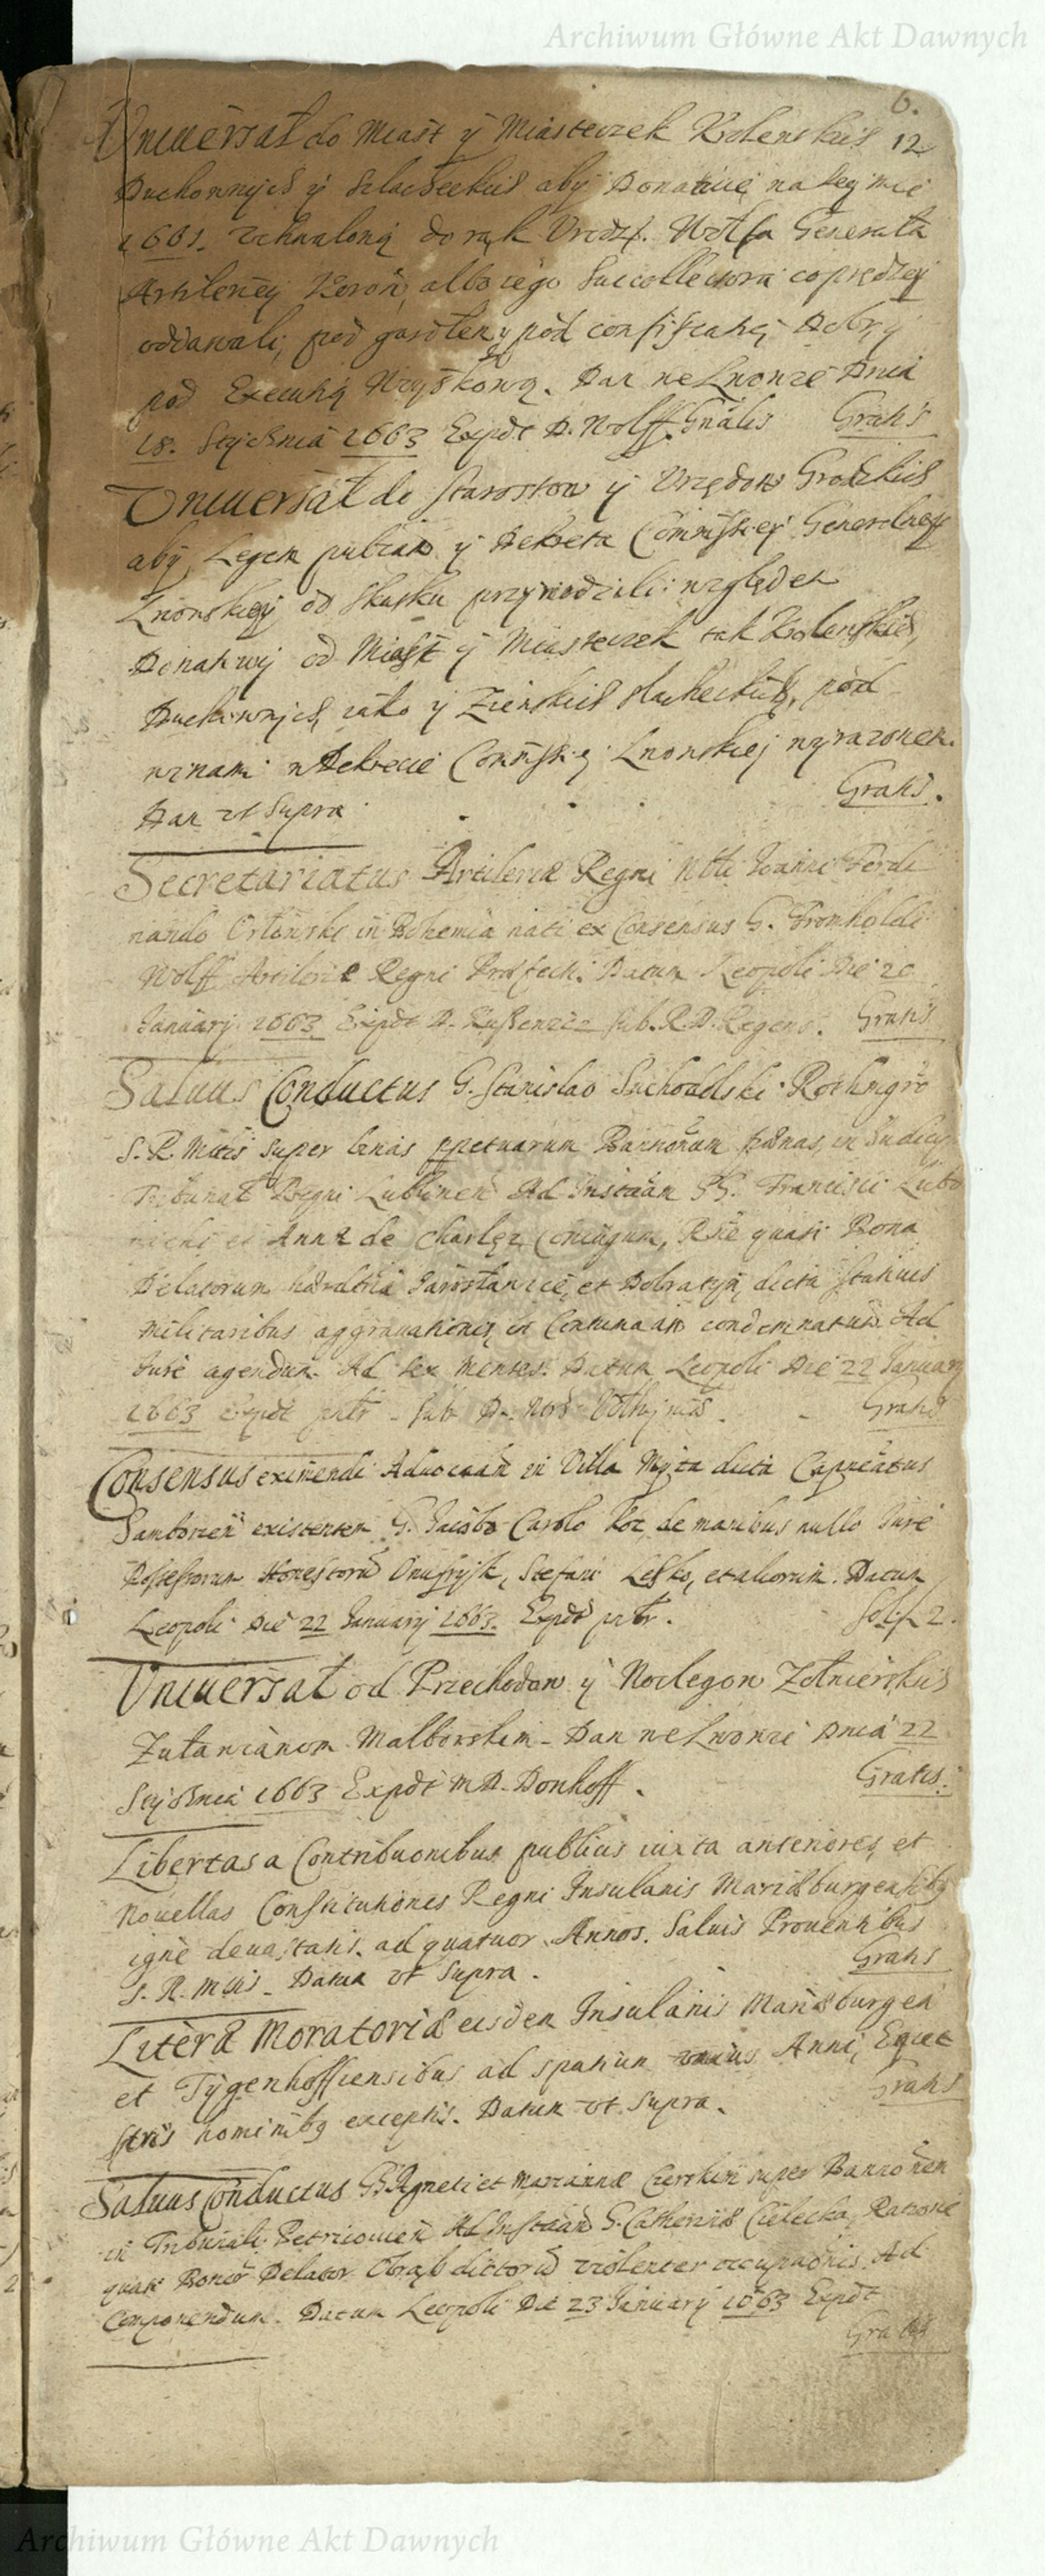 Archiwum Główne Akt Dawnych
6.
12
Uniuersał do Miast y Miasteczek Krolewskich
Duchownych y Szlacheckich aby Donatiuę na Seymie
1661. vchwaloną do rąk Vrodz. Wolfa Generała
Artileriey Koron. albo iego Succollectora coprędzey
oddawali, pod gardłem y pod confiscatią Dobr y
pod Executią Woyskową. Dan we Lwowie Dnia
18. Stycznia 1663 Expdt D. Wolff Gnalis Gratis
Uniuersał do Starostow y Vrzędow Grodzkich
aby Legem publicam y Dekreta Commissiey Generalney
Lwowskiey od skutku przywodzili względem
Donatiwy od Miast y Miasteczek tak Krolewskich,
Duchownych, iako y Ziemskich slacheckich, pod
winami w Dekrecie Commissiey Lwowskiej wyrazonemi
Dan vt Supra Gratis.
Secretariatus Artileriæ Regni Nbli Joanni Ferdi
nando Orlonski in Bohemia nati ex Consensus G. Fromholdi
Wolff Artileriæ Regni Præfecti. Datum Leopoli Die 20
January 1663 Expdt D. sub. R. D. Regens. Gratis
Saluus Conductus G. Stanislao Suchodolski Rothmgro
S. R. Mttis super binas ppetuarum Bannonum pœnas, in Judicijs
Tribunal Regni Lublinen Ad Instaan GG. Francisci Lubo
et Annæ de Charlęz Coniugum, Rne quasi Bona
Delatorum hæreditria Jarosławice, et Dobratyn dicta Statiuis
Militaribus aggrauationis, in Contumaam condemnatus. Ad
Jure agendum. Ad sex Menses. Datum Leopoli Die 22 January
1663 Expdt pntr sub Gratis
Consensus eximendi Aduocaam in Villa Myta dicta Capneatus
Samborien existentem G. Jacobo Carolo Koz de manibus nullo Jure
Possessorum Honestorum Onufryk, Stefani Lesko, et aliorum. Datum
Leopoli Die 22 January 1663. Expdt pntr. 2.
Uniuersał od Przechodow y Noclegow Zołnierskich
Zuławianom Malborskim. Dan we Lwowie Dnia 22
Stycznia 1663 Expdt M D. Donhoff. Gratis.
Libertas a Contribuonibus publicis iuxta anteriores, et
Nouellas Constitutiones Regni Insulanis Mariæburgensibus
igne deuastatis. ad quatuor Annos. Saluis Prouentibus
S. R. Mttis. Datum vt Supra. Gratis
Literæ Moratoriæ eisdem Insulanis Mariæburgen
et Tygenhoffiensibus ad spatium vnius Anni, Eques
stris hominibus exceptis. Datum vt Supra. Gratis
Saluus Conductus G. Agneti et Mariannæ super Bannonem
in Tribunali Petricouien Ad Instaan G. Catherinæ Cielecka, Ratione
quasi Bonor Delator Obrąb dictorum violenter occupaonis. Ad
Componendum. Datum Leopoli Die 23 January 1663 Expdt
Gratis
Archiwum Główne Akt Dawnych